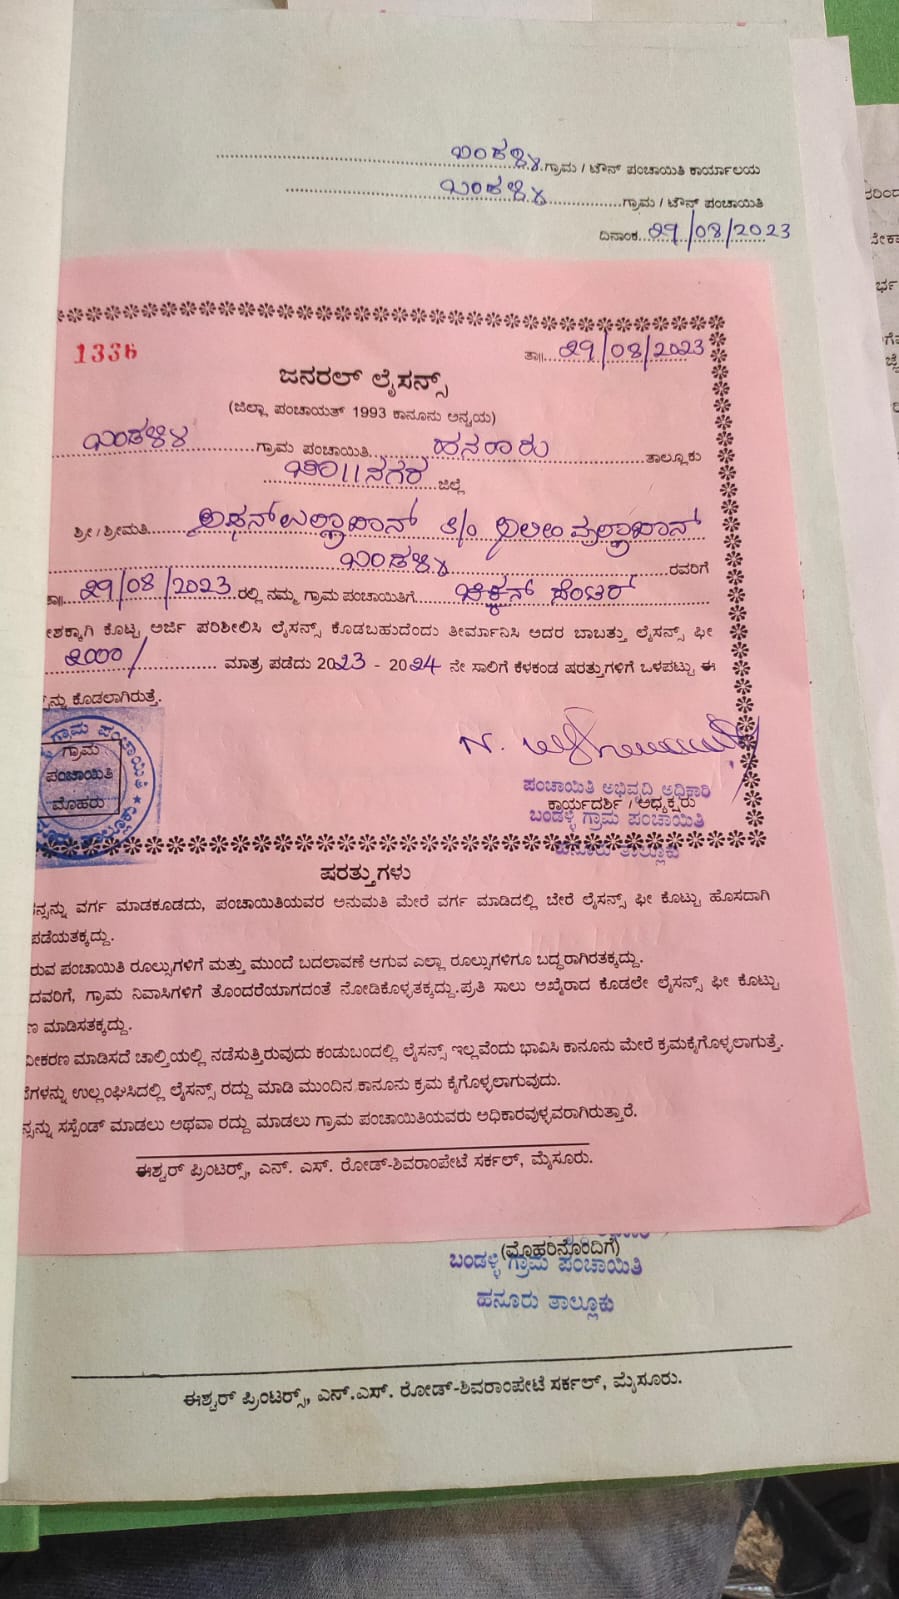 ಬಂಡಳ್ಳಿ ಗ್ರಾಮ / ಟೌನ್ ಪಂಚಾಯಿತಿ ಕಾರ್ಯಾಲಯ
ಬಂಡಳ್ಳಿ ಗ್ರಾಮ / ಟೌನ್ ಪಂಚಾಯಿತಿ
ದಿನಾಂಕ 29/08/2023
1336 ತಾ|| 29/08/2023
ಜನರಲ್ ಲೈಸನ್ಸ್
(ಜಿಲ್ಲಾ ಪಂಚಾಯತ್ 1993 ಕಾನೂನು ಅನ್ವಯ)
ಬಂಡಳ್ಳಿ ಗ್ರಾಮ ಪಂಚಾಯಿತಿ ಹನೂರು ತಾಲ್ಲೂಕು
ನಗರ ಜಿಲ್ಲೆ
ಶ್ರೀ / ಶ್ರೀಮತಿ S/o
ಬಂಡಳ್ಳಿ ರವರಿಗೆ
ತಾ|| 29/08/2023 ರಲ್ಲಿ ನಮ್ಮ ಗ್ರಾಮ ಪಂಚಾಯಿತಿಗೆ ಚಿಕ್ಕನ್ ಸೆಂಟರ್
ಶಕ್ಕಾಗಿ ಕೊಟ್ಟ ಅರ್ಜಿ ಪರಿಶೀಲಿಸಿ ಲೈಸನ್ಸ್ ಕೊಡಬಹುದೆಂದು ತೀರ್ಮಾನಿಸಿ ಅದರ ಬಾಬತ್ತು ಲೈಸನ್ಸ್ ಫೀ
ಮಾತ್ರ ಪಡೆದು 2023 - 2024 ನೇ ಸಾಲಿಗೆ ಕೆಳಕಂಡ ಷರತ್ತುಗಳಿಗೆ ಒಳಪಟ್ಟು ಈ
ನ್ನು ಕೊಡಲಾಗಿರುತ್ತೆ.
ಗ್ರಾಮ ಪಂಚಾಯಿತಿ
ಗ್ರಾಮ
ಪಂಚಾಯಿತಿ
ಮೊಹರು
ಪಂಚಾಯಿತಿ ಅಭಿವೃದ್ಧಿ ಅಧಿಕಾರಿ
ಕಾರ್ಯದರ್ಶಿ / ಅಧ್ಯಕ್ಷರು
ಬಂಡಳ್ಳಿ ಗ್ರಾಮ ಪಂಚಾಯಿತಿ
ಹನೂರು ತಾಲ್ಲೂಕು
ಷರತ್ತುಗಳು
ನ್ಸನ್ನು ವರ್ಗ ಮಾಡಕೂಡದು, ಪಂಚಾಯಿತಿಯವರ ಅನುಮತಿ ಮೇರೆ ವರ್ಗ ಮಾಡಿದಲ್ಲಿ ಬೇರೆ ಲೈಸನ್ಸ್ ಫೀ ಕೊಟ್ಟು ಹೊಸದಾಗಿ
ಪಡೆಯತಕ್ಕದ್ದು.
ರುವ ಪಂಚಾಯಿತಿ ರೂಲ್ಸುಗಳಿಗೆ ಮತ್ತು ಮುಂದೆ ಬದಲಾವಣೆ ಆಗುವ ಎಲ್ಲಾ ರೂಲ್ಸುಗಳಿಗೂ ಬದ್ಧರಾಗಿರತಕ್ಕದ್ದು.
ದವರಿಗೆ, ಗ್ರಾಮ ನಿವಾಸಿಗಳಿಗೆ ತೊಂದರೆಯಾಗದಂತೆ ನೋಡಿಕೊಳ್ಳತಕ್ಕದ್ದು.ಪ್ರತಿ ಸಾಲು ಅಖೈರಾದ ಕೊಡಲೇ ಲೈಸನ್ಸ್ ಫೀ ಕೊಟ್ಟು
ಣ ಮಾಡಿಸತಕ್ಕದ್ದು.
ೀಕರಣ ಮಾಡಿಸದೆ ಚಾಲ್ತಿಯಲ್ಲಿ ನಡೆಸುತ್ತಿರುವುದು ಕಂಡುಬಂದಲ್ಲಿ ಲೈಸನ್ಸ್ ಇಲ್ಲವೆಂದು ಭಾವಿಸಿ ಕಾನೂನು ಮೇರೆ ಕ್ರಮಕೈಗೊಳ್ಳಲಾಗುತ್ತೆ.
ಗಳನ್ನು ಉಲ್ಲಂಘಿಸಿದಲ್ಲಿ ಲೈಸನ್ಸ್ ರದ್ದು ಮಾಡಿ ಮುಂದಿನ ಕಾನೂನು ಕ್ರಮ ಕೈಗೊಳ್ಳಲಾಗುವುದು.
ನ್ಸನ್ನು ಸಸ್ಪೆಂಡ್ ಮಾಡಲು ಅಥವಾ ರದ್ದು ಮಾಡಲು ಗ್ರಾಮ ಪಂಚಾಯಿತಿಯವರು ಅಧಿಕಾರವುಳ್ಳವರಾಗಿರುತ್ತಾರೆ.
ಈಶ್ವರ್ ಪ್ರಿಂಟರ್ಸ್, ಎನ್. ಎಸ್. ರೋಡ್-ಶಿವರಾಂಪೇಟೆ ಸರ್ಕಲ್, ಮೈಸೂರು.
(ಮೊಹರಿನೊಂದಿಗೆ)
ಬಂಡಳ್ಳಿ ಗ್ರಾಮ ಪಂಚಾಯಿತಿ
ಹನೂರು ತಾಲ್ಲೂಕು
ಈಶ್ವರ್ ಪ್ರಿಂಟರ್ಸ್, ಎನ್.ಎಸ್. ರೋಡ್-ಶಿವರಾಂಪೇಟೆ ಸರ್ಕಲ್, ಮೈಸೂರು.